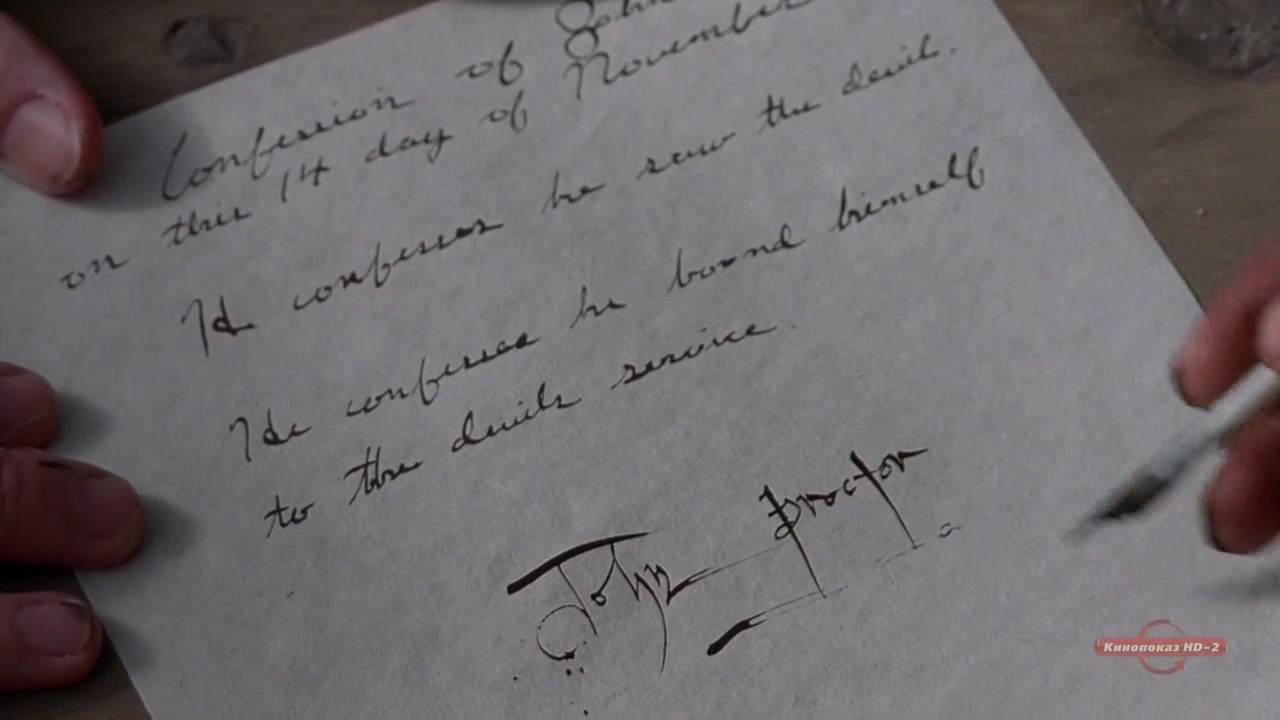 Confession of John
on this 14 day of November
He confesses he saw the devil.
He confesses he bound himself
to the devils service.
John Proctor
Кинопоказ HD-2